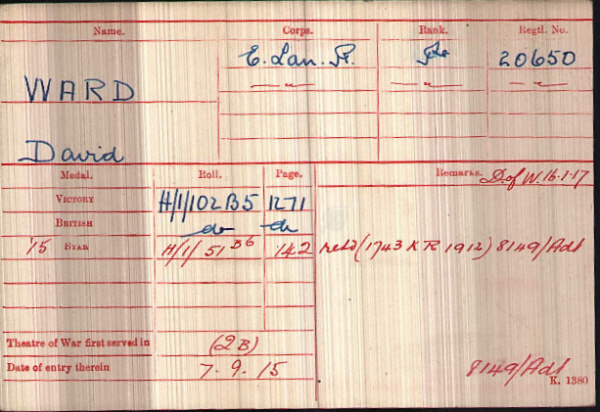 Name. Corps. Rank. Regtl. No.
E. Lan. R. Pte 20650
WARD — " — — " — — " —
David
Medal. Roll. Page. Remarks. D. of W. 16.1.17
VICTORY H/1/102 B5 1271
BRITISH do do
'15 STAR H/1/51 B6 142 retd (1743 K R 1912) 8149/Adt
Theatre of War first served in (2B)
Date of entry therein 7. 9. 15 8149/Adt
K. 1380